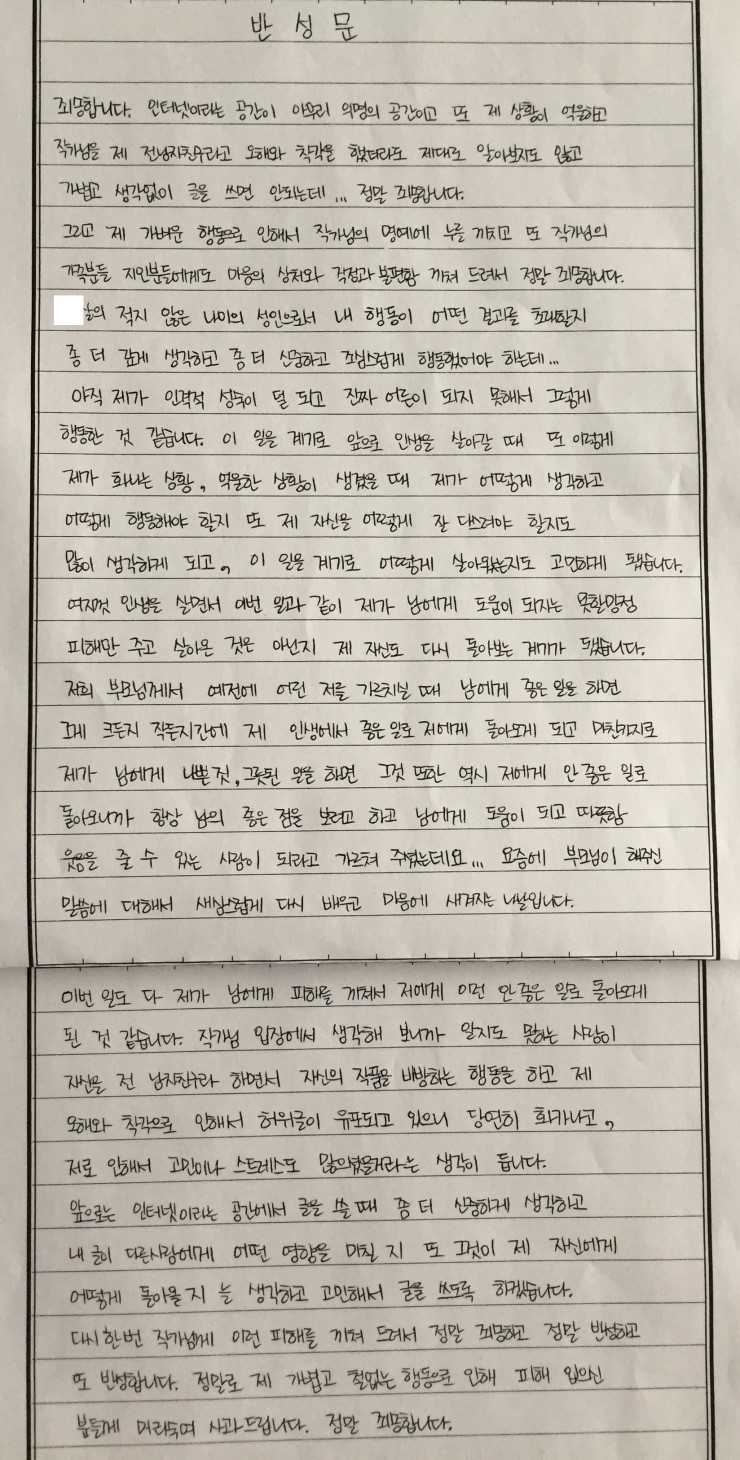 반 성 문
죄송합니다. 인터넷이라는 공간이 아무리 익명의 공간이고 또 제 상황이 억울하고
작가님을 제 전남자친구라고 오해와 착각을 했더라도 제대로 알아보지도 않고
가볍고 생각없이 글을 쓰면 안되는데... 정말 죄송합니다.
그리고 제 가벼운 행동으로 인해서 작가님의 명예에 누를 끼치고 또 작가님의
가족분들 지인분들에게도 마음의 상처와 걱정과 불편함 끼쳐 드려서 정말 죄송합니다.
살의 적지 않은 나이의 성인으로서 내 행동이 어떤 결과를 초래할지
좀 더 깊게 생각하고 좀 더 신중하고 조심스럽게 행동했어야 하는데...
아직 제가 인격적 성숙이 덜 되고 진짜 어른이 되지 못해서 그렇게
행동한 것 같습니다. 이 일을 계기로 앞으로 인생을 살아갈 때 또 이렇게
제가 화나는 상황, 억울한 상황이 생겼을 때 제가 어떻게 생각하고
어떻게 행동해야 할지 또 제 자신을 어떻게 잘 다스려야 할지도
많이 생각하게 되고, 이 일을 계기로 어떻게 살아왔는지도 고민하게 됐습니다.
여지껏 인생을 살면서 이번 일과 같이 제가 남에게 도움이 되지는 못할망정
피해만 주고 살아온 것은 아닌지 제 자신도 다시 돌아보는 계기가 됐습니다.
저희 부모님께서 예전에 어린 저를 가르치실 때 남에게 좋은 일을 하면
그게 크든지 작든지간에 제 인생에서 좋은 일로 저에게 돌아오게 되고 마찬가지로
제가 남에게 나쁜 것, 그릇된 일을 하면 그것 또한 역시 저에게 안 좋은 일로
돌아오니까 항상 남의 좋은 점을 보려고 하고 남에게 도움이 되고 따뜻함
웃음을 줄 수 있는 사람이 되라고 가르쳐 주셨는데요... 요즘에 부모님이 해주신
말씀에 대해서 새삼스럽게 다시 배우고 마음에 새겨지는 나날입니다.
이번 일도 다 제가 남에게 피해를 끼쳐서 저에게 이런 안 좋은 일로 돌아오게
된 것 같습니다. 작가님 입장에서 생각해 보니까 알지도 못하는 사람이
자신을 전 남자친구라 하면서 자신의 작품을 비방하는 행동을 하고 제
오해와 착각으로 인해서 허위글이 유포되고 있으니 당연히 화가나고,
저로 인해서 고민이나 스트레스도 많으셨을거라는 생각이 듭니다.
앞으로는 인터넷이라는 공간에서 글을 쓸 때 좀 더 신중하게 생각하고
내 글이 다른사람에게 어떤 영향을 미칠 지 또 그것이 제 자신에게
어떻게 돌아올 지 늘 생각하고 고민해서 글을 쓰도록 하겠습니다.
다시 한번 작가님께 이런 피해를 끼쳐 드려서 정말 죄송하고 정말 반성하고
또 반성합니다. 정말로 제 가볍고 철없는 행동으로 인해 피해 입으신
분들께 머리숙여 사과드립니다. 정말 죄송합니다.